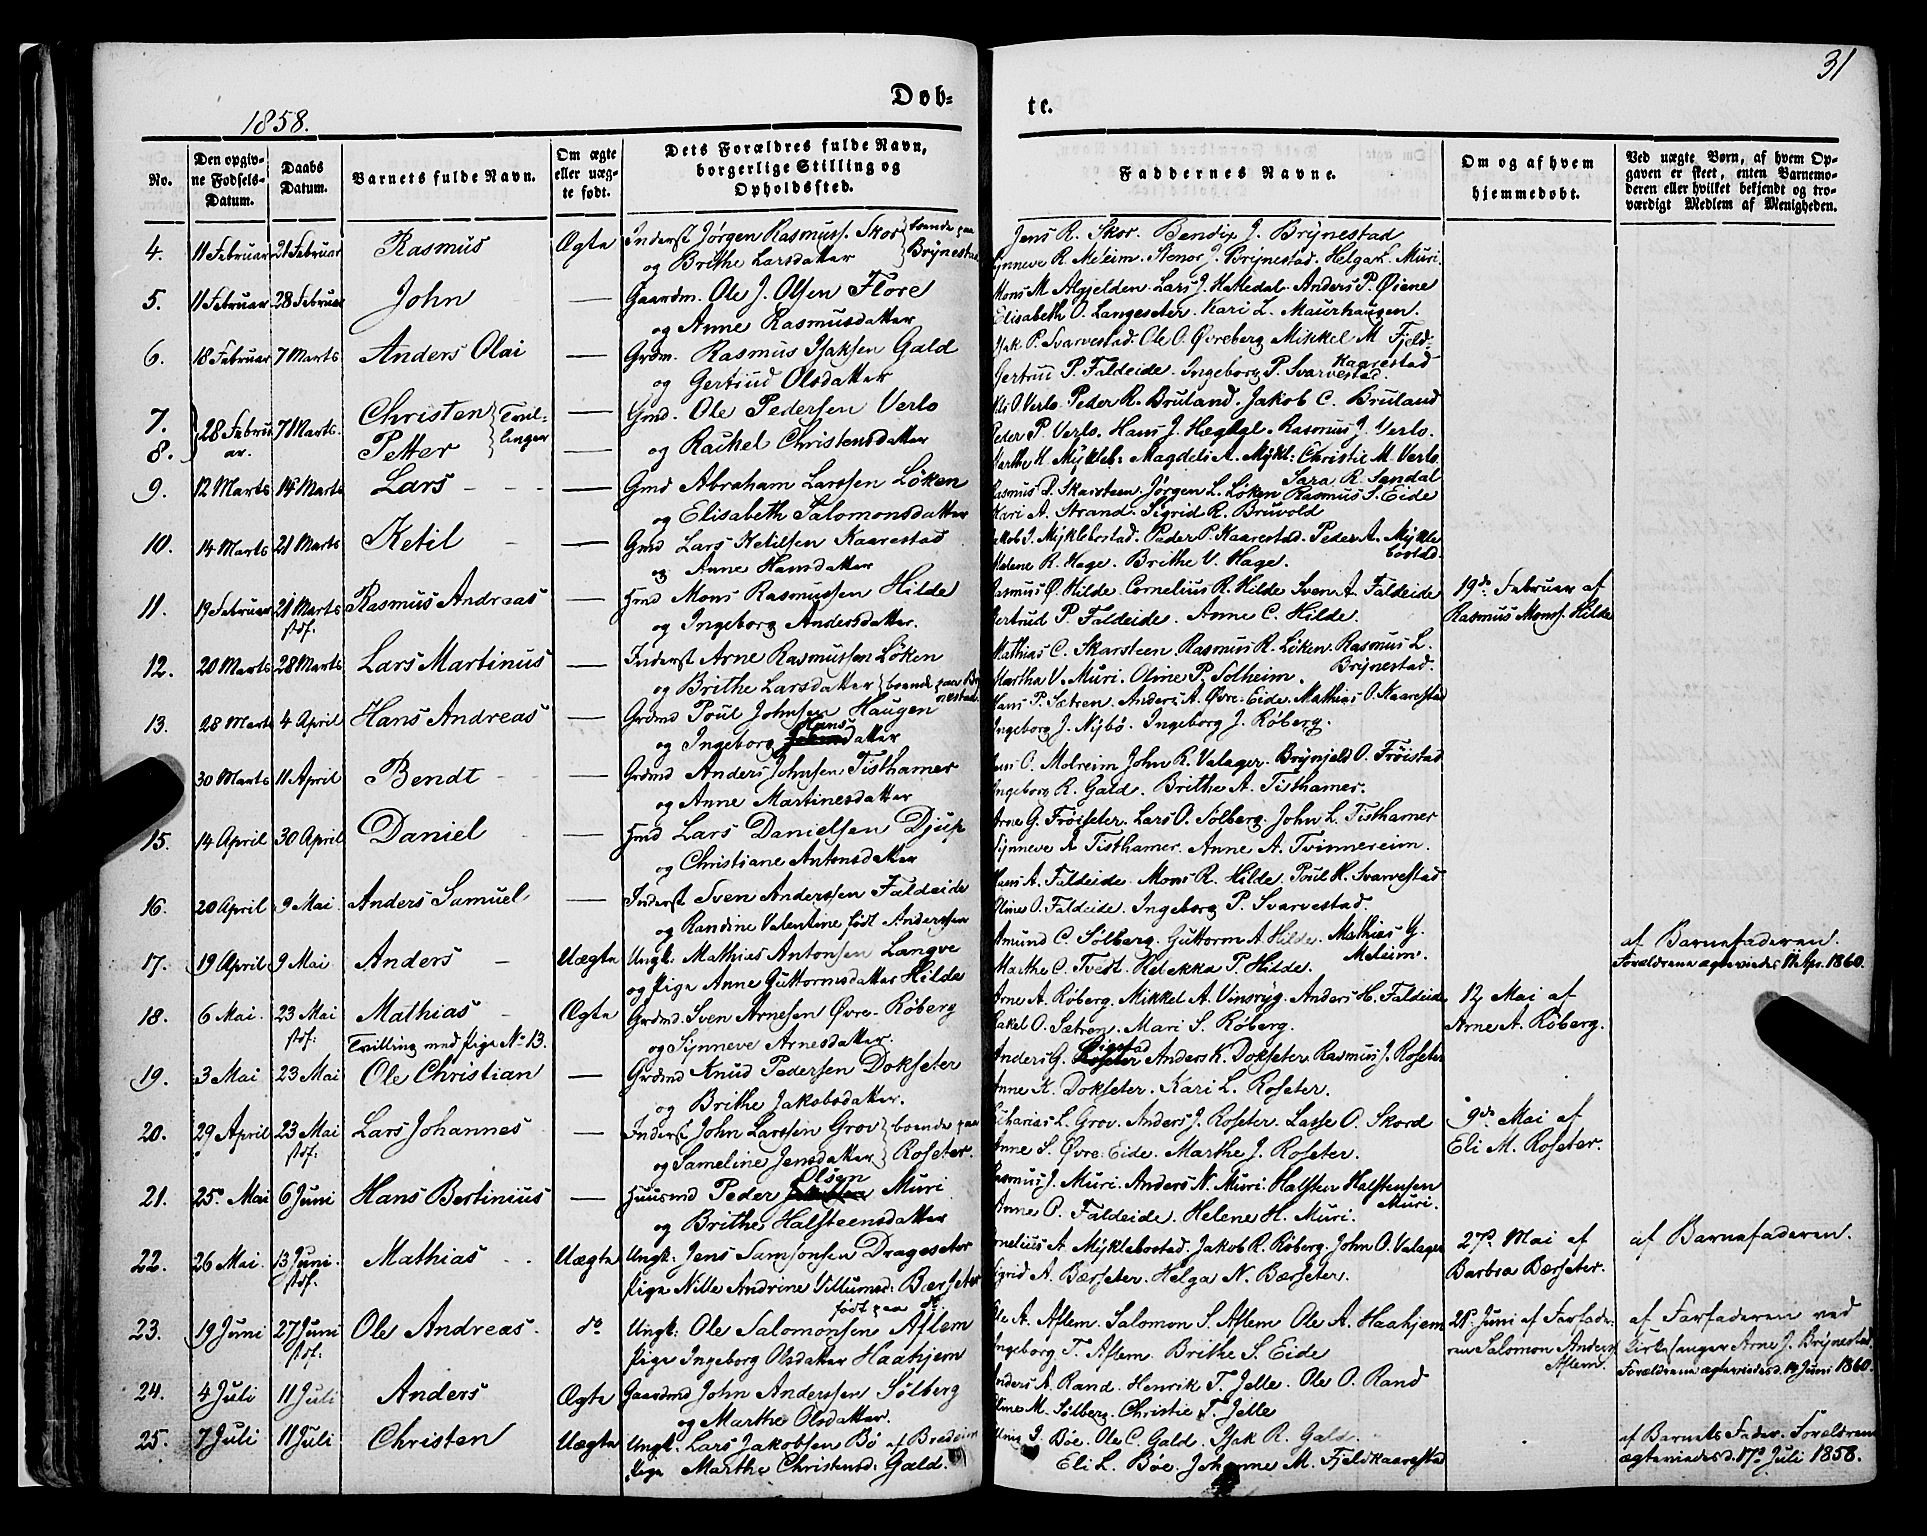 31
1858.
Døb-
te.
No.
Den opgiv-
ne Fødsels-
Datum.
Daabs
Datum.
Barnets fulde Navn.
Om ægte
eller uæg-
te født.
Dets Forældres fulde Navn,
borgerlige Stilling og
Opholdssted.
Faddernes Navne.
Om og af hvem
hjemmedøbt.
Ved uægte Børn, af hvem Op-
gaven er skeet, enten Barnemo-
deren eller hvilket bekjendt og tro-
værdigt Medlem af Menigheden.
4. 11 Februar 21 Februar Rasmus Ægte Inderst Jørgen Rasmuss. Skor boende paa
og Brithe Larsdatter Brynestad
Jens R. Skor. Bendix J. Brynestad
Synneve R. Meleim. Stenor J. Brynestad. Helga L. Muri.
5. 11 Februar 28 Februar John — Gaardm. Ole J. Olsen Flore
og Anne Rasmusdatter
Mons M. Algjelden. Lars J. Hattedal. Anders P. Øiene
Elisabeth O. Langeseter. Kari L. Maurhaugen.
6. 18 Februar 7 Marts Anders Olai — Grdm. Rasmus Isaksen Gald
og Gertrud Olsdatter
Isak P. Svarvestad. Ole O. Øvreberg. Mikkel M. Fjeld-
Kaarestad
Gertrud P. Faldeide. Ingeborg P. Svarvestad.
7. 28 Febru 7 Marts. Christen Tvil- — Gmd. Ole Pedersen Verlo
8. ar. Petter linger — og Rachel Christensdatter
Ols O. Verlo. Peder R. Bruland. Jakob C. Bruland
Peder P. Verlo. Hans J. Heggegl. Rasmus J. Verlo.
Marthe H. Mykleb: Magdeli A. Mykl: Christie M. Verlo
Sara R. Sendal
9. 12 Marts 14 Marts Lars — Gmd Abraham Larssen Løken
og Elisabeth Salomonsdatter
Rasmus D. Skarsteen. Jørgen L. Løken. Rasmus S. Eide
Kari A. Strand. Sigrid R. Bruvold
10. 14 Marts 21 Marts Ketil — Gmd Lars Ketilsen Kaarestad
og Anne Hansdatter
Jakob J. Myklebostad. Peder P. Kaarestad. Peder A. Mykle
bostad.
Helene R. Hage. Brithe V. Hage.
11. 19 Februar 21 Marts Rasmus Andreas — Hmd Mons Rasmussen Hilde
stdf. og Ingeborg Andersdatter.
Rasmus Ø. Hilde. Cornelius R. Hilde Sven A. Faldeide
Gertrud P. Faldeide. Anne C. Hilde.
19de Februar af
Rasmus Monss. Hilde
12. 20 Marts 28 Marts Lars Martinus — Inderst Arne Rasmussen Løken
og Brithe Larsdatter boende paa Bry
nestad
Mathias C. Skarsteen Rasmus R. Løken. Rasmus L.
Brynestad.
Martha V. Muri. Oline P. Solheim.
13. 28 Marts 4 April Hans Andreas — Grdmd Poul Johnsen Haugen
Hans
og Ingeborg datter
Hans P. Sætren. Anders A. Øvre-Eide. Mathias O. Kaarestad
Ingeborg J. Nybø. Ingeborg J. Røberg.
30 Marts 11 April Bendt — Grdmd Anders Johnsen Tisthamer
og Anne Martinesdatter
O. Molreim John R. Valager. Brynjeld O. Frøistad
Ingeborg R. Gald. Brithe A. Tisthamer.
15. 14 April 30 April Daniel — Hmd Lars Danielsen Djup
og Christiane Antonsdatter
Arne G. Frøiseter. Lars O. Solberg. John L. Tisthamer
Synneve A. Tisthamer. Anne A. Tvinnereim.
16. 20 April 9 Mai. Anders Samuel — Inderst Sven Anderssen Faldeide
og Randine Valentine født Anderssen
Hans A. Faldeide. Mons R. Hilde. Poul H. Svarvestad
Oline O. Faldeide. Ingeborg P. Svarvestad.
17. 19 April 9 Mai Anders Uægte Ungk: Mathias Antonsen Langve
og Pige Anne Guttormsdatter Hilde
Amund C. Solberg. Guttorm A. Hilde. Mathias G.
Meleim.
Marthe C. Tvedt. Rebekka P. Hilde.
af Barnefaderen.
Forældrene ægteviedes 11 Apr. 1860.
18. 6 Mai. 23 Mai Mathias Ægte Grdmd. Sven Arnesen Øvre-Røberg
stdf: Tvilling med Pige No 13. og Synneve Arnesdatter.
Arne A. Røberg. Mikkel A. Vinsryg. Anders H. Faldeide
Rakel O. Sætren. Mari S. Røberg.
12 Mai af
Arne A. Røberg.
19. 3 Mai 23 Mai Ole Christian — Grdmd Knud Pedersen Dokseter
og Brithe Jakobsdatter.
Anders G. Roseter Anders K. Dokseter. Rasmus J. Roseter
Anne K. Dokseter. Kari L. Roseter.
20. 29 April 23 Mai Lars Johannes — Inderst John Larssen Grov boende paa
stdf: og Sameline Jensdatter Roseter.
Zcharias L. Grov. Anders J. Roseter. Lasse O. Skord
Anne S. Øvre-Eide. Marthe J. Roseter.
9de Mai af
Eli M. Roseter.
21. 25de Mai 6 Juni Hans Bertinius — Huusmd Peder Olsen Muri
og Brithe Halsteensdatter
Rasmus J. Muri. Anders N. Muri. Halsten Halstensen
Muri.
Anne P. Faldeide. Helene H. Muri.
22. 26 Mai. 13 Juni. Mathias Uægte Ungk: Jens Samsonsen Drageseter
stdf: Pige Nille Andrine Villumsd: Bærseter
født paa do
Cornelius A. Myklebostad. Jakob R. Røberg. John O. Valager
Sigrid A. Bærseter. Helga N. Bærseter.
27de Mai af
Barbra Bærseter.
af Barnefaderen.
23. 19 Juni 27 Juni Ole Andreas. do Ungk: Ole Salomonsen Aflem
stdf: Pige Ingeborg Olsdatter Haahjem
Ole A. Aflem. Salomon S. Aflem Ole A. Haahjem
Ingeborg T. Aflem. Brithe S. Eide
21de Juni af Farfade-
ren Salomon Anders.
Aflem.
af Farfaderen ved
Kirkesanger Arne J. Brynestad.
Forældrene ægteviedes d. 14 Juni 1860.
24. 4 Juli 11 Juli Anders Ægte Gaardmd John Anderssen Solberg
og Marthe Olsdatter.
Anders A. Rand. Henrik T. Jelle. Ole O. Rand
Oline M. Solberg. Christie T. Jelle
25. 7 Juli 11 Juli Christen Uægte Ungk: Lars Jakobsen Bø af Bredeim
Pige Marthe Christensd: Gald.
J. Bøe. Ole C. Gald. Isak R. Gald.
Eli L. Bøe. Johanne M. Fjeldkaarestad
af Barnets Fader. Forældrene
ægteviedes d. 17de Juli 1858.